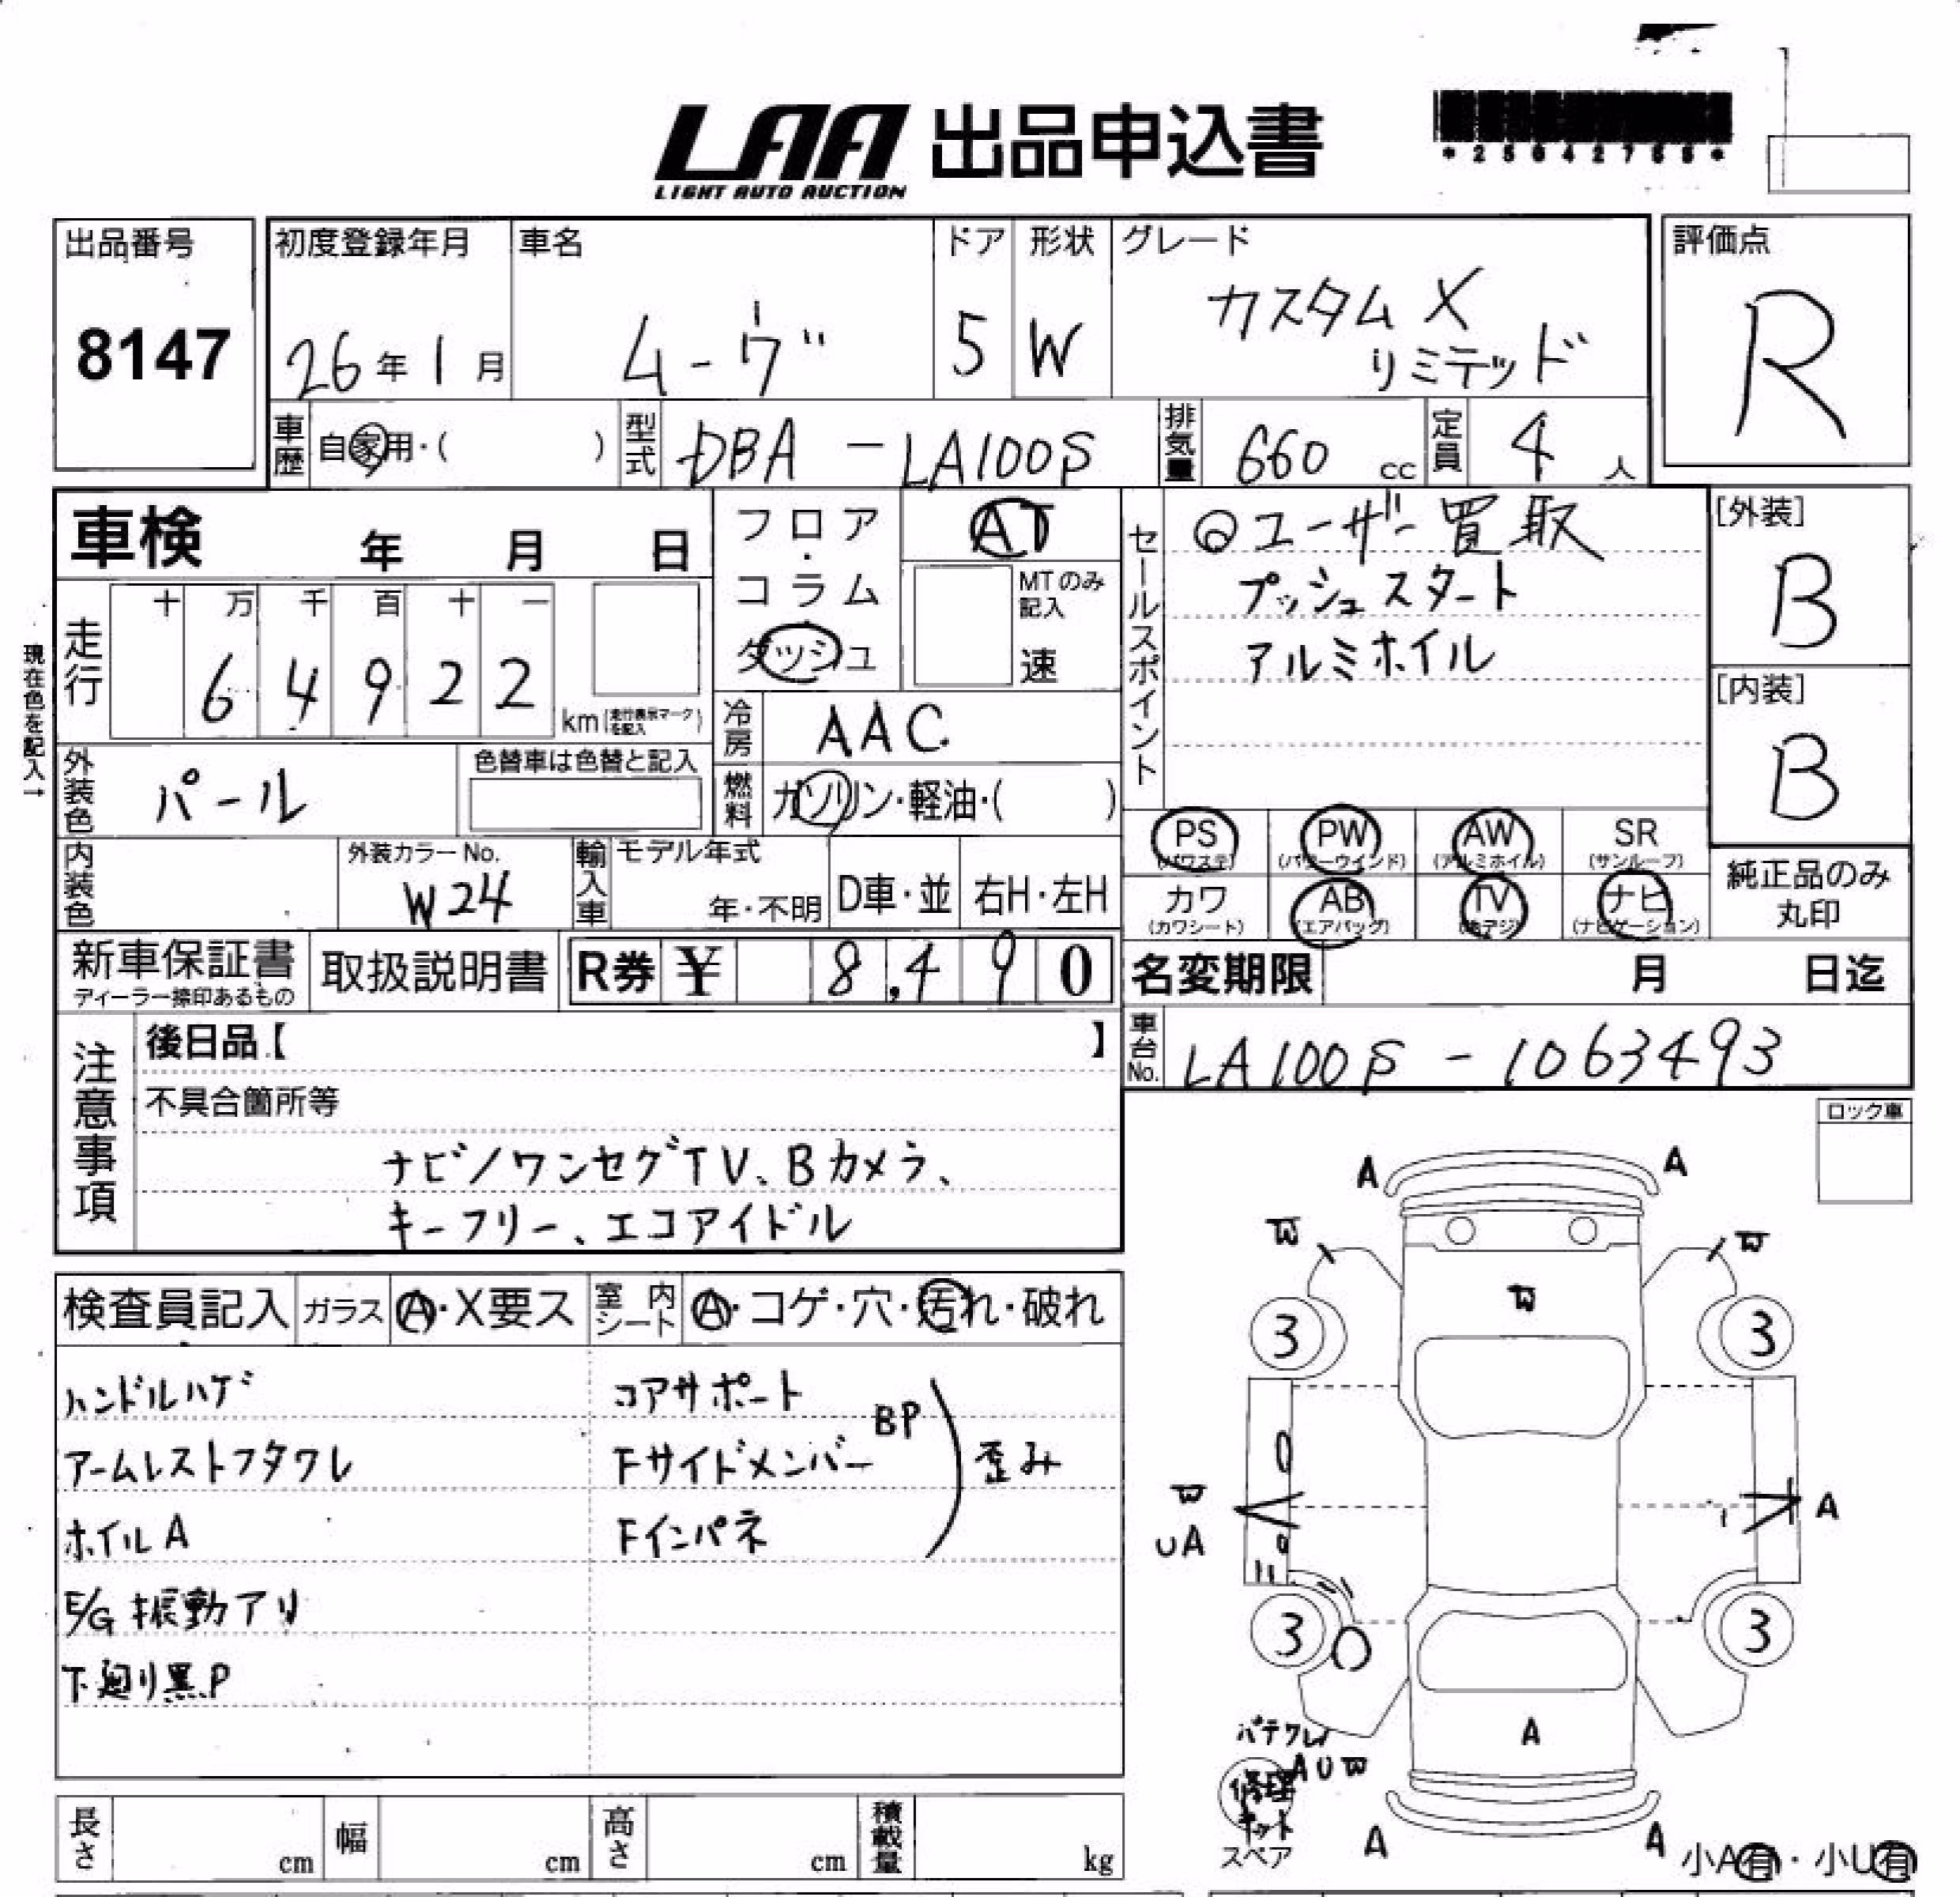 LAA 出品申込書
LIGHT AUTO AUCTION
出品番号 初度登録年月 車名 ドア 形状 グレード 評価点
8147 26年1月 ムーヴ 5 W カスタムX リミテッド R
車歴 自家用・( ) 型式 DBA-LA100S 排気量 660 cc 定員 4 人
車検 年 月 日
フロア・コラム・ダッシュ
AT
MTのみ記入
速
セールスポイント
ユーザー買取
プッシュスタート
アルミホイル
[外装]
B
[内装]
B
現在色を記入→
走行 十 万 千 百 十 一
6 4 9 2 2 km(走行表示マークを記入)
冷房 AAC
外装色 パール 色替車は色替と記入
燃料 ガソリン・軽油・( )
PS PW AW SR
(パワステ) (パワーウインド) (アルミホイル) (サンルーフ)
カワ AB TV ナビ
(カワシート) (エアバッグ) (ナビゲーション)
純正品のみ
丸印
内装色 外装カラーNo. W24 輸入車 モデル年式 年・不明 D車・並 右H・左H
新車保証書 取扱説明書 R券 ¥ 8,490
ディーラー捺印あるもの
名変期限 月 日迄
車台No. LA100S-1063493
注意事項
後日品【 】
不具合箇所等
ナビ/ワンセグTV、Bカメラ、
キーフリー、エコアイドル
ロック車
検査員記入 ガラス A・X要ス 室内シート A・コゲ・穴・汚れ・破れ
ハンドルハゲ コアサポート
アームレストフタワレ Fサイドメンバー BP 歪み
ホイルA Fインパネ
E/G振動アリ
下廻り黒P
A A
W W
W
3 3
W
UA A
3 3
パテワレ
A
AUW
修理
キット
スペア
A A
小A有・小U有
長さ cm 幅 cm 高さ cm 積載量 kg